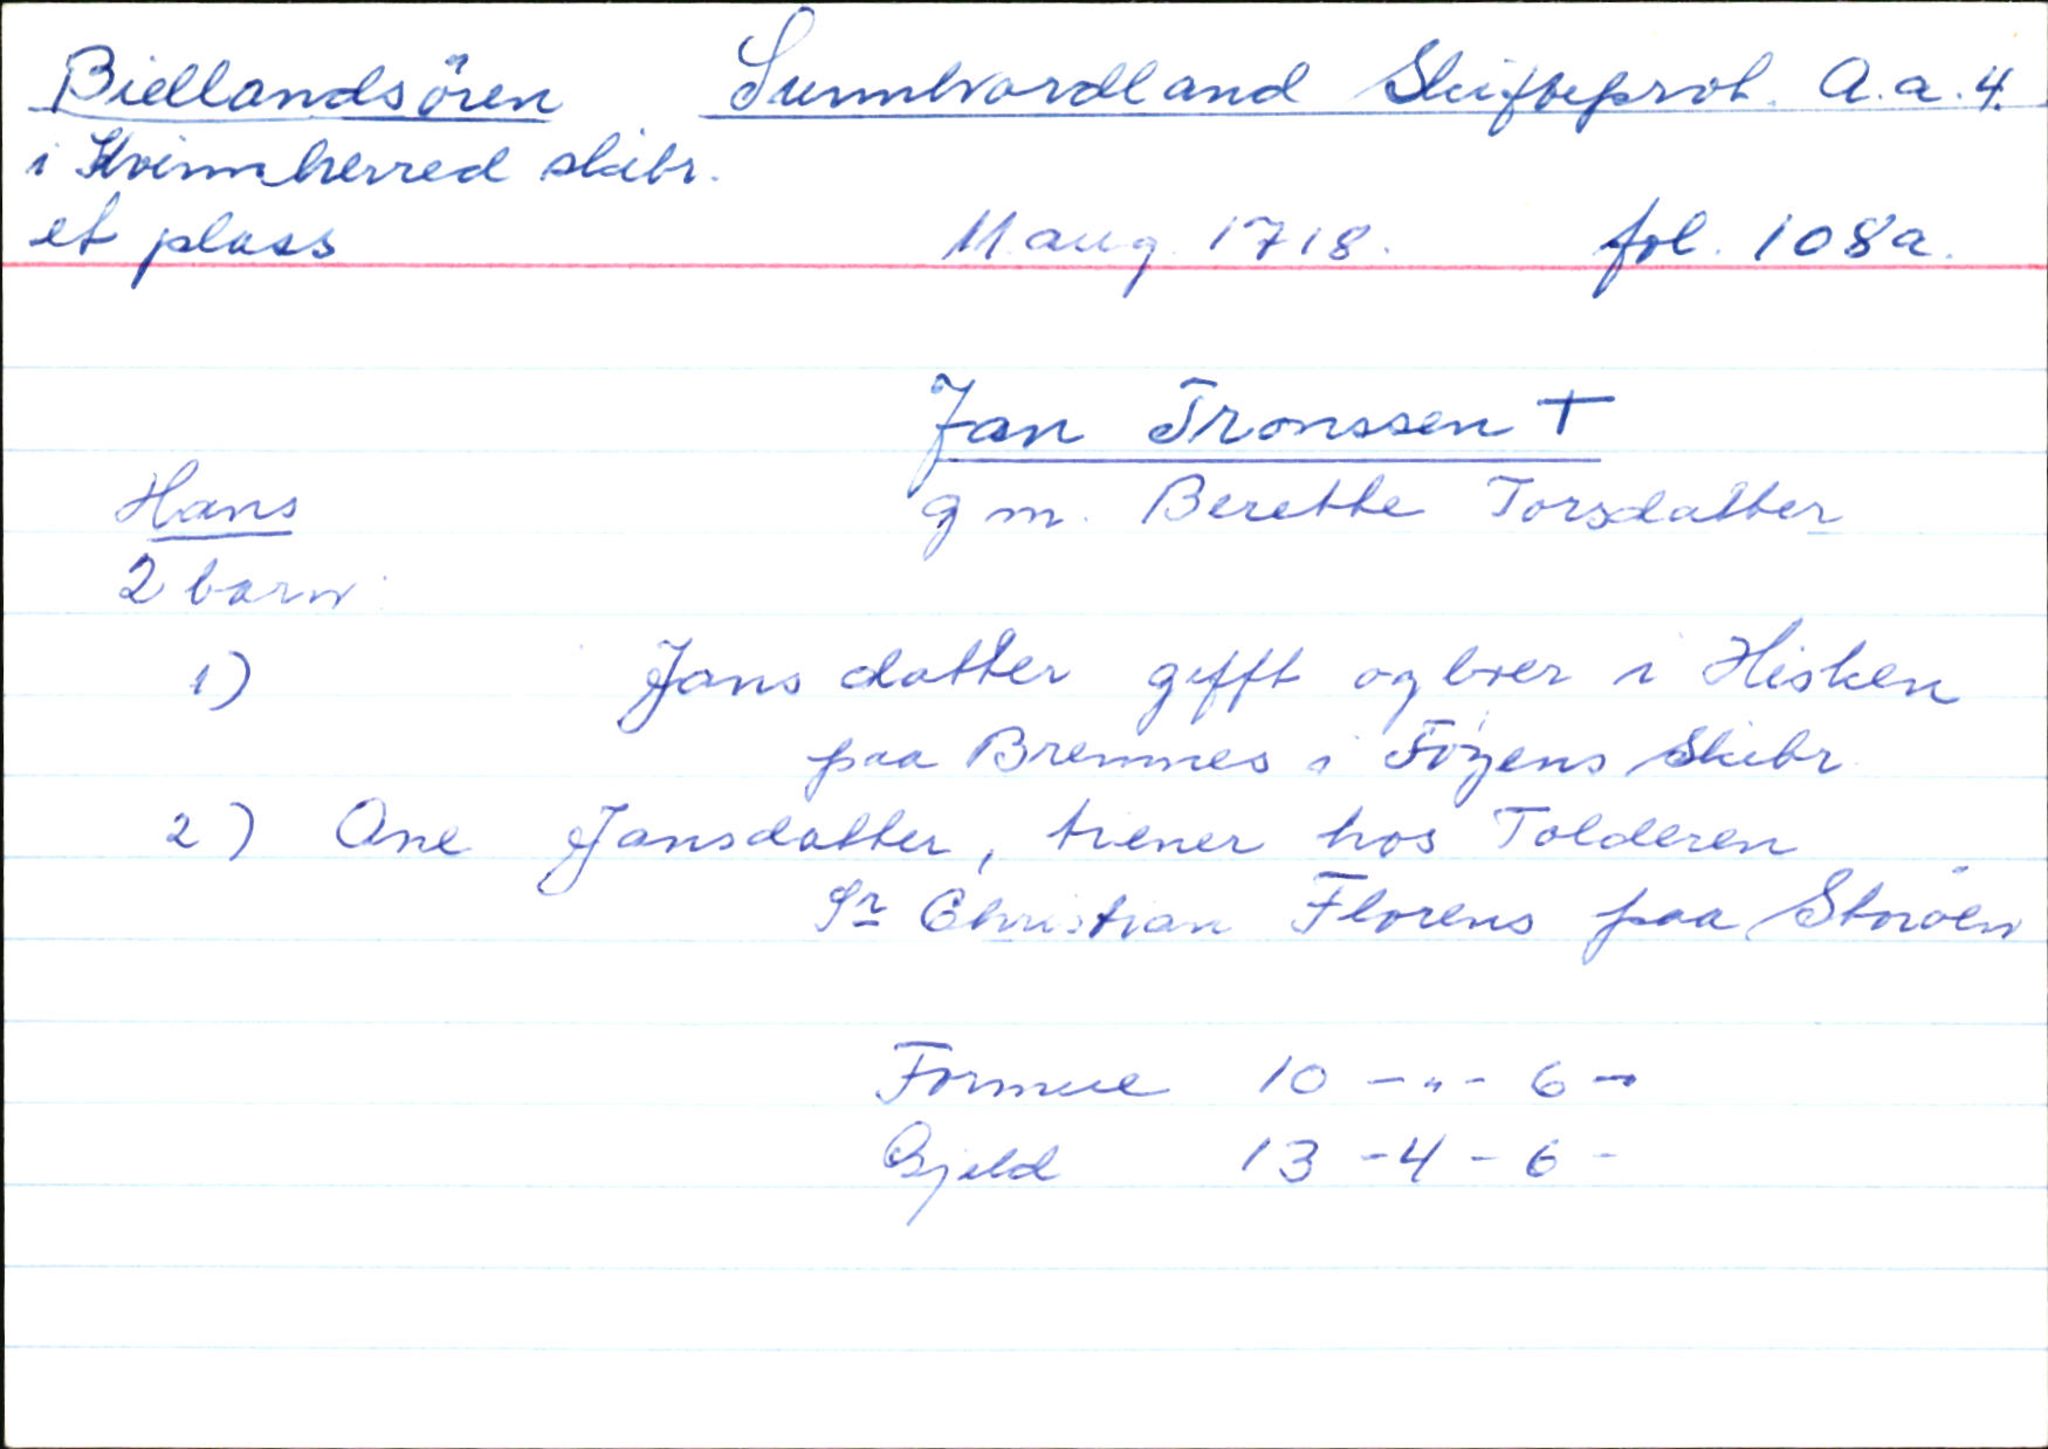 Biellandsören Sunnhordland Skifteprot. A.a.4.
i Kvinnherred skibr.
et plass 11. aug. 1718. fol. 108a.
Jan Tronssen †
Hans g m. Berette Torsdatter
2 barn
1) Jansdatter gifft og boer i Hisken
paa Bremnes i Föyens Skibr
2) Ane Jansdatter, tiener hos Tolderen
Sr Christian Florens paa Storöen
Formue 10 - " - 6 -
Gjeld 13 - 4 - 6 -